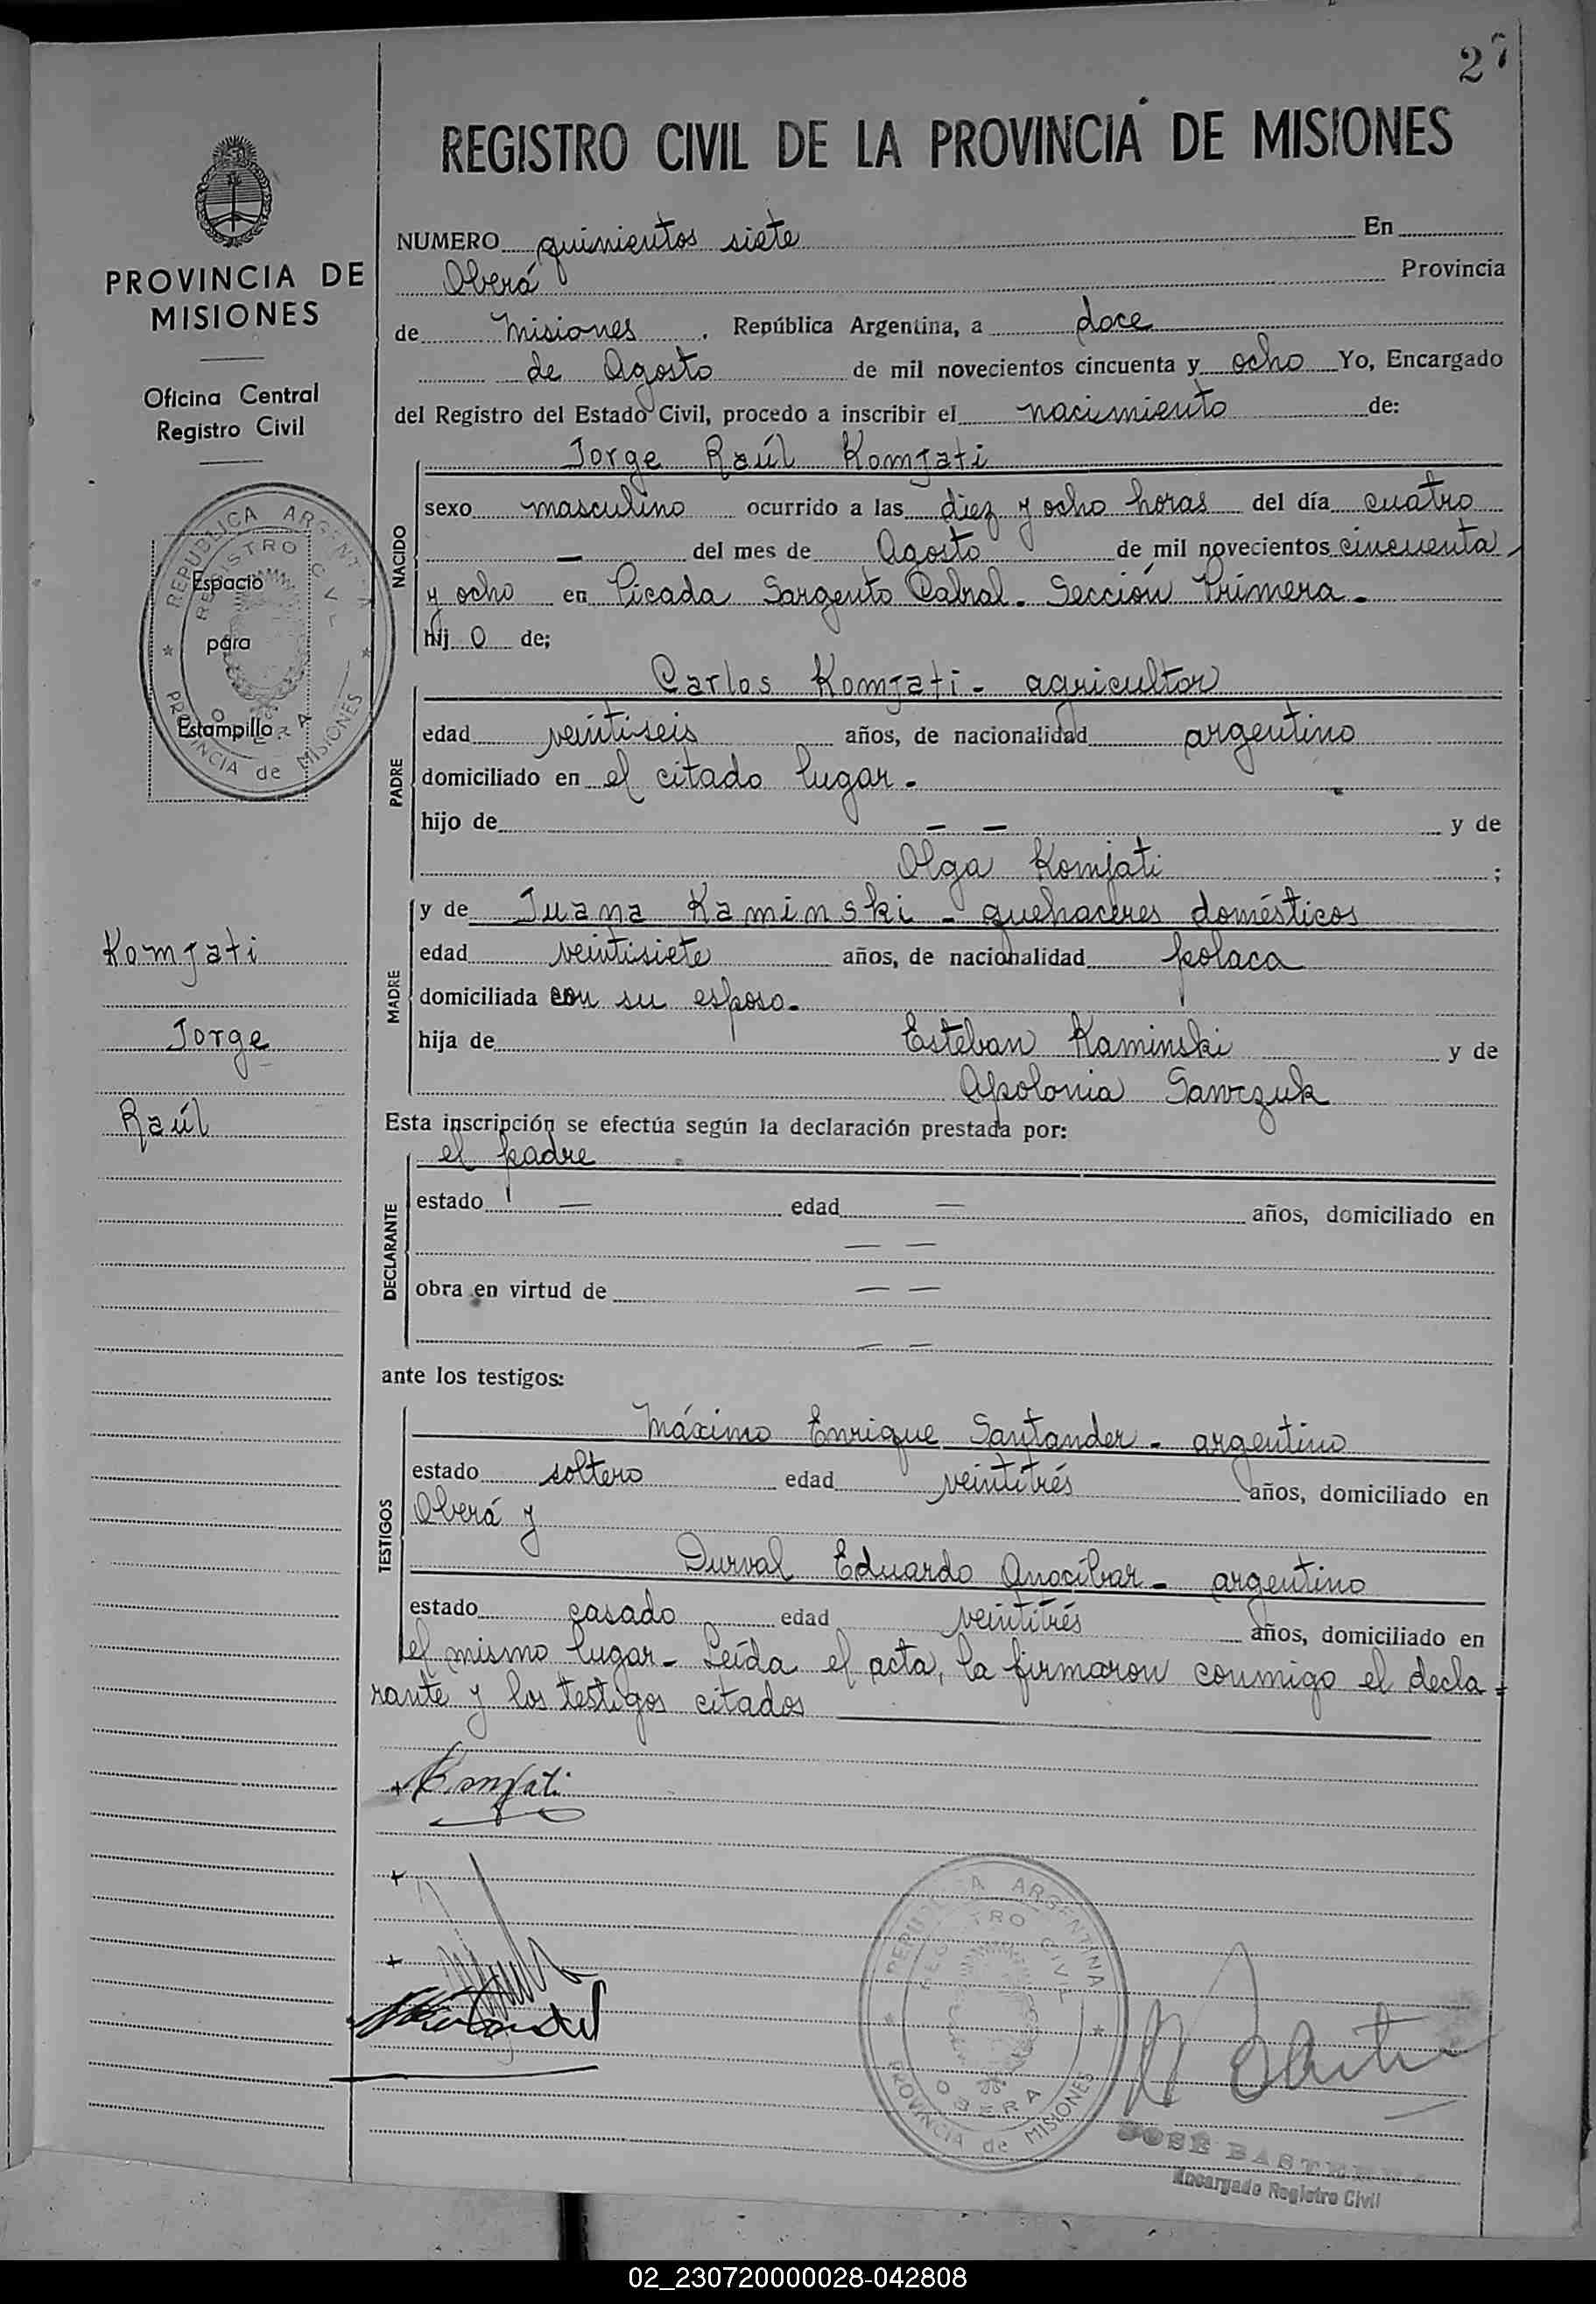 27
REGISTRO CIVIL DE LA PROVINCIA DE MISIONES
PROVINCIA DE
MISIONES
Oficina Central
Registro Civil
REPUBLICA ARGENTINA
REGISTRO CIVIL
OBERA
PROVINCIA de MISIONES
Espacio
para
Estampilla
Komjati
Jorge
Raúl
NUMERO quinientos siete En
Oberá Provincia
de Misiones. República Argentina, a doce
de Agosto de mil novecientos cincuenta y ocho Yo, Encargado
del Registro del Estado Civil, procedo a inscribir el nacimiento de:
NACIDO
Jorge Raúl Komjati
sexo masculino ocurrido a las diez y ocho horas del día cuatro
— del mes de Agosto de mil novecientos cincuenta
y ocho en Picada Sargento Cabral. Sección Primera.
hij o de;
PADRE
Carlos Komjati - agricultor
edad veintiseis años, de nacionalidad argentino
domiciliado en el citado lugar.
hijo de — — y de
Olga Komjati ;
MADRE
y de Juana Kaminski - quehaceres domésticos
edad veintisiete años, de nacionalidad polaca
domiciliada con su esposo.
hija de Esteban Kaminski y de
Apolonia Sawczuk
Esta inscripción se efectúa según la declaración prestada por:
DECLARANTE
el padre
estado — edad — años, domiciliado en
— —
obra en virtud de — —
— —
ante los testigos:
TESTIGOS
Máximo Enrique Santander - argentino
estado soltero edad veintitrés años, domiciliado en
Oberá y
Durval Eduardo Anocíbar - argentino
estado casado edad veintitrés años, domiciliado en
el mismo lugar - Leída el acta, la firmaron conmigo el decla=
rante y los testigos citados
Komjati
REPUBLICA ARGENTINA
REGISTRO CIVIL
OBERA
PROVINCIA de MISIONES
JOSE
Encargado Registro Civil
02_230720000028-042808